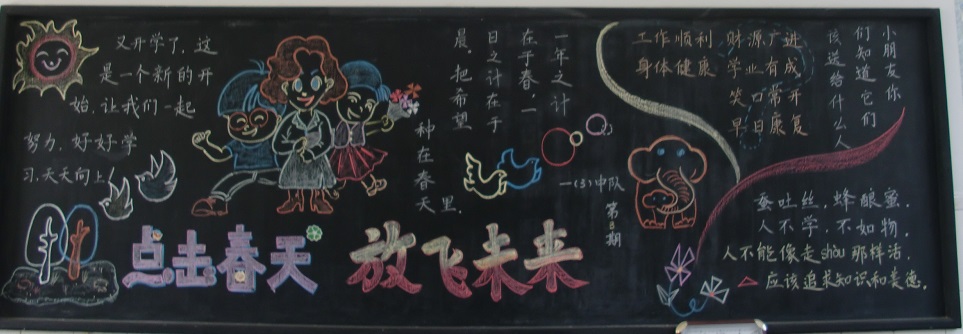 又开学了，这
是一个新的开
始，让我们一起
努力，好好学
习，天天向上！
一年之计
在于春，一
日之计在于
晨。把希望
种在春
天里。
工作顺利 财源广进
身体健康 学业有成
笑口常开
早日康复
小朋友你
们知道它们
该送给什么人
一(3)中队
第8期
蚕吐丝，蜂酿蜜。
人不学，不如物。
人不能像走shòu那样活，
应该追求知识和美德。
点击春天 放飞未来